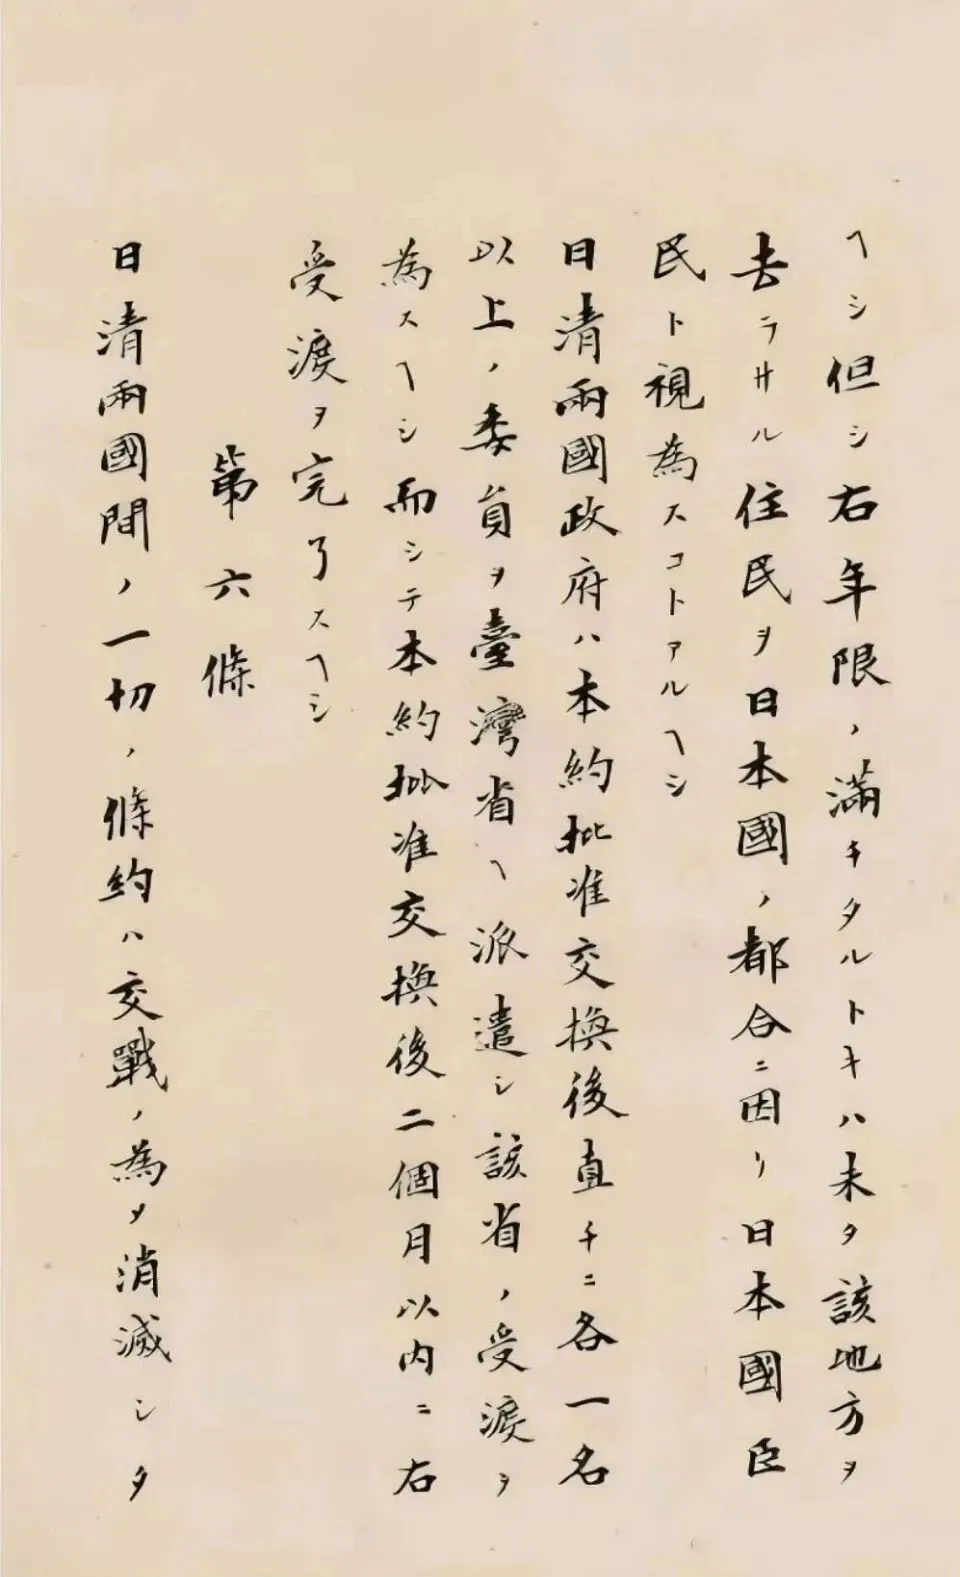 ヘシ但シ右年限ノ滿チタルトキハ未タ該地方ヲ
去ラサル住民ヲ日本國ノ都合ニ因リ日本國臣
民ト視為スコトアルヘシ
日清兩國政府ハ本約批准交換後直チニ各一名
以上ノ委員ヲ臺灣省ヘ派遣シ該省ノ受渡ヲ
為スヘシ而シテ本約批准交換後二個月以内ニ右
受渡ヲ完了スヘシ
第六條
日清兩國間ノ一切ノ條約ハ交戰ノ為メ消滅シタ